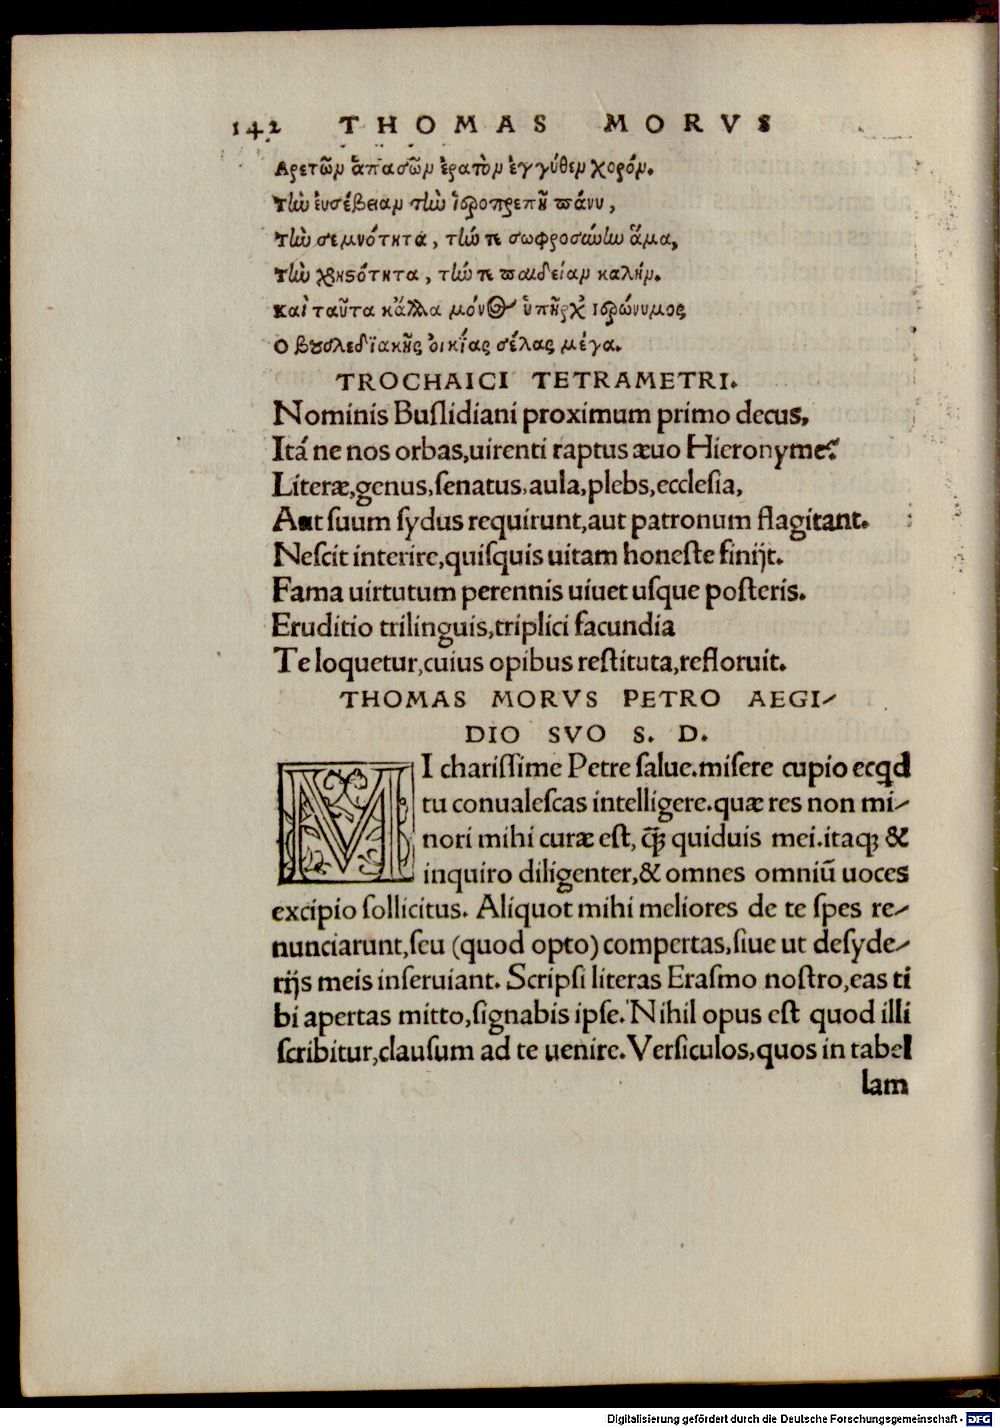 142 THOMAS MORVS
Αρετῶν ἁπασῶν ἐρατὸν ἐγγύθεν χορόν.
Τὴν ἐυσέβειαν τὴν ἱεροπρεπῆ πάνυ,
Τὴν σεμνότητά, τήν τε σωφροσύνην ἅμα,
Τὴν χρηστότητα, τήν τε παιδείαν καλήν.
Καὶ ταῦτα κἄλλα μόνος ὑπῆρχ' ιερώνυμος
Ο βουσλεδϊακῆς ὀικίας σέλας μέγα.
TROCHAICI TETRAMETRI.
Nominis Buſlidiani proximum primo decus,
Itá ne nos orbas,uirenti raptus æuo Hieronyme?
Literæ,genus,ſenatus,aula,plebs,eccleſia,
Aut ſuum ſydus requirunt,aut patronum flagitant.
Neſcit interire,quiſquis uitam honeſte finijt.
Fama uirtutum perennis uiuet uſque poſteris.
Eruditio trilinguis,triplici facundia
Te loquetur,cuius opibus reſtituta,refloruit.
THOMAS MORVS PETRO AEGI-
DIO SVO S. D.
MI chariſſime Petre ſalue.miſere cupio ecqd
tu conualeſcas intelligere.quæ res non mi-
nori mihi curæ eſt, q̃ꝫ quiduis mei.itaqꝫ &
inquiro diligenter,& omnes omniũ uoces
excipio ſollicitus. Aliquot mihi meliores de te ſpes re-
nunciarunt,ſeu (quod opto) compertas,ſiue ut deſyde-
rijs meis inſeruiant. Scripſi literas Eraſmo noſtro,eas ti
bi apertas mitto,ſignabis ipſe. Nihil opus eſt quod illi
ſcribitur,clauſum ad te uenire. Verſiculos,quos in tabel
lam
Digitalisierung gefördert durch die Deutsche Forschungsgemeinschaft - DFG